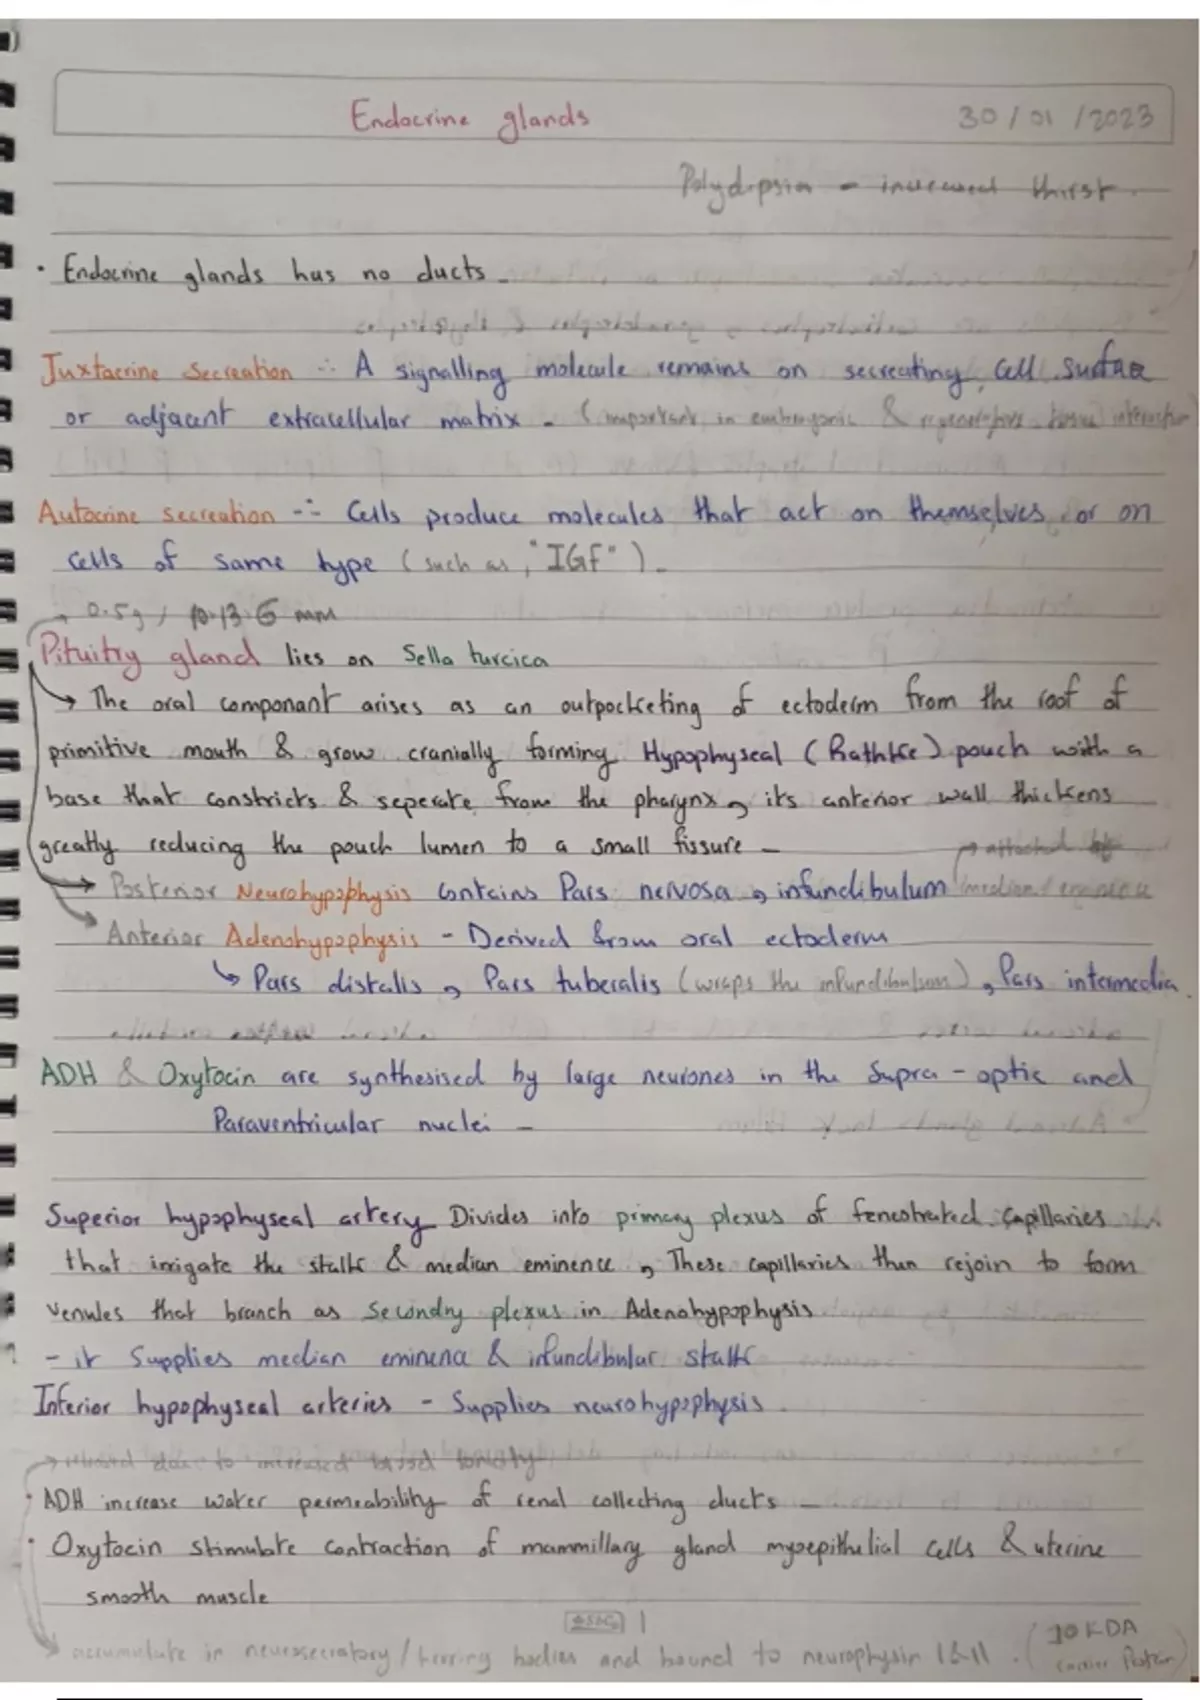 Endocrine glands 30/01/2023
Polydipsia - increased thirst.
· Endocrine glands has no ducts.
Juxtacrine Secreation :- A signalling molecule remains on secreating cell surface
or adjacent extracellular matrix. (important in embryonic & regenerative tissue interaction)
Autocrine secreation :- Cells produce molecules that act on themselves or on
cells of same type (such as, "IGF").
→ 0.5g / 10.13.6 mm
Pituitry gland lies on Sella turcica
→ The oral componant arises as an outpocketing of ectoderm from the roof of
primitive mouth & grow cranially forming Hypophyseal (Rathke) pouch with a
base that constricts & seperate from the pharynx, its anterior wall thickens
greatly reducing the pouch lumen to a small fissure.
→ attached by
→ Posterior Neurohypophysis contains Pars nervosa, infundibulum (median eminence
→ Anterior Adenohypophysis - Derived from oral ectoderm
↳ Pars distalis, Pars tuberalis (wraps the infundibulum), Pars intermedia.
ADH & Oxytocin are synthesised by large neurones in the Supra-optic and
Paraventricular nuclei.
Superior hypophyseal artery Divides into primary plexus of fenestrated capillaries
that irrigate the stalk & median eminence, These capillaries then rejoin to form
venules that branch as Secondry plexus in Adenohypophysis
- it Supplies median eminence & infundibular stalk
Inferior hypophyseal arteries - Supplies neurohypophysis.
→ released due to increased blood tonicity
· ADH increase water permeability of renal collecting ducts.
· Oxytocin stimulate contraction of mammillary gland myoepithelial cells & uterine
smooth muscle
1
→ accumulate in neurosecratory / herring bodies and bound to neurophysin I & II. (10 KDA
carrier Protein)